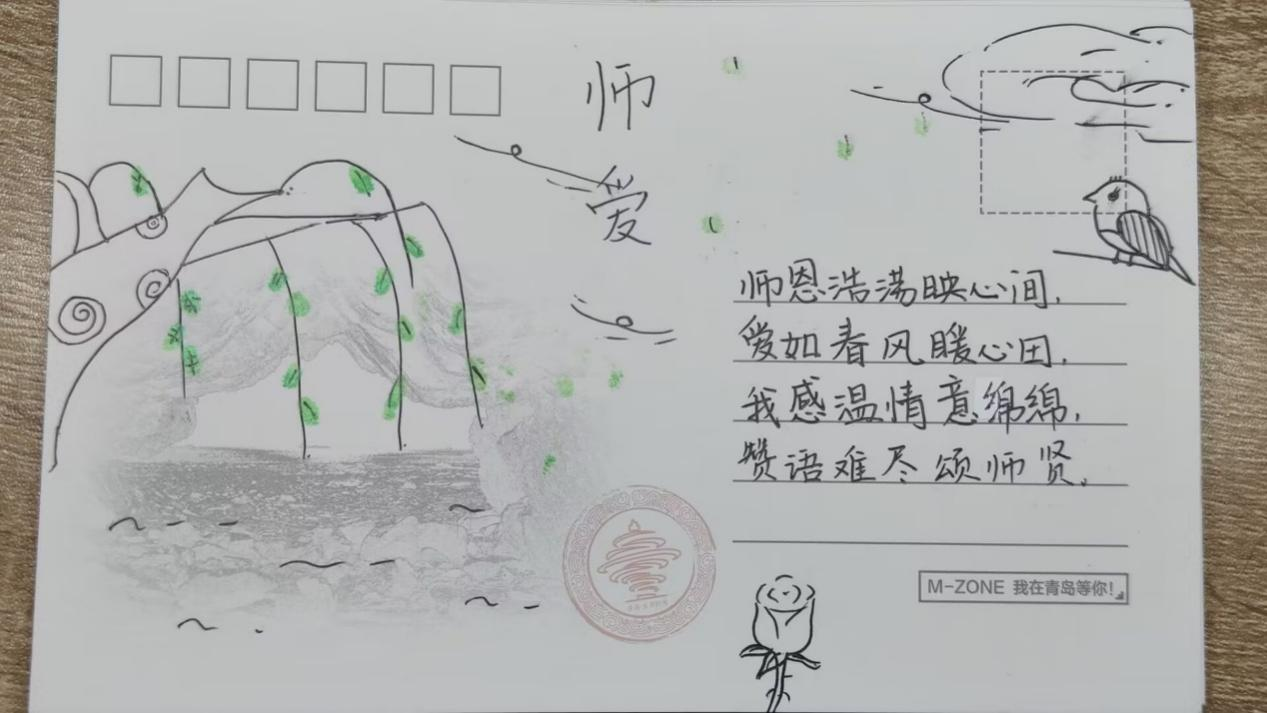 师
爱
师恩浩荡映心间，
爱如春风暖心田，
我感温情意绵绵，
赞语难尽颂师贤。
M-ZONE 我在青岛等你！